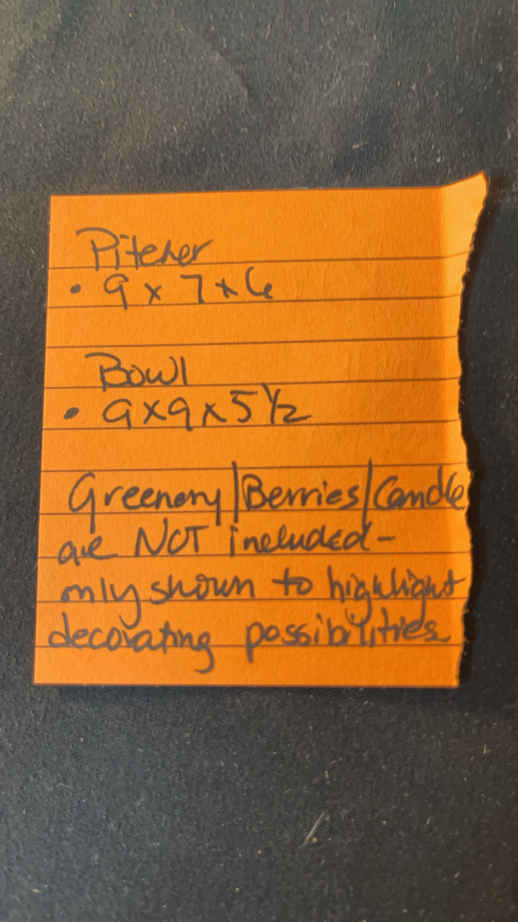 Pitcher
• 9 x 7 x 6
Bowl
• 9x9x5 1/2
Greenery/Berries/Candle
are NOT included-
only shown to highlight
decorating possibilities